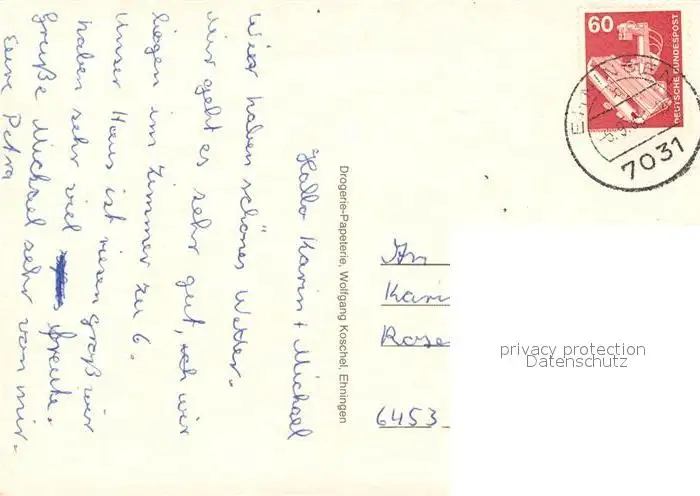 Hallo Karin + Michael
Wier haben schönes Wetter.
Mir geht es sehr gut, ich wir
liegen im Zimmer zu 6.
Unser Haus ist riesen groß wir
haben sehr viel freute.
Grüße Michael sehr von mir.
Eure Petra
Drogerie-Papeterie, Wolfgang Koschel, Ehningen
60
DEUTSCHE BUNDESPOST
EHNINGEN
7031
An
Kari
Rose
6453
privacy protection
Datenschutz